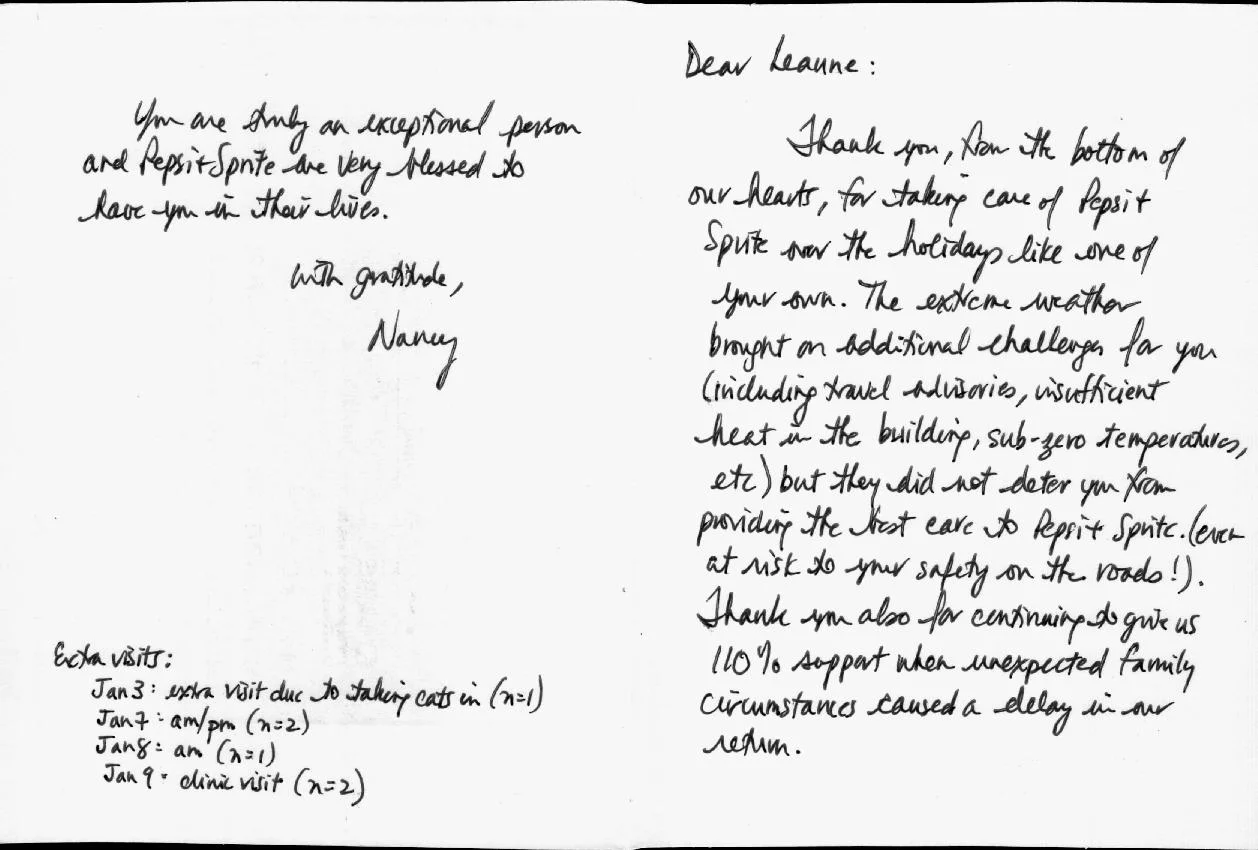 Dear Leanne:
Thank you, from the bottom of
our hearts, for taking care of Pepsi +
Sprite over the holidays like one of
your own. The extreme weather
brought on additional challenges for you
(including travel advisories, insufficient
heat in the building, sub-zero temperatures,
etc) but they did not deter you from
providing the best care to Pepsi + Sprite. (even
at risk to your safety on the roads!).
Thank you also for continuing to give us
110% support when unexpected family
circumstances caused a delay in our
return.
You are truly an exceptional person
and Pepsi + Sprite are very blessed to
have you in their lives.
with gratitude,
Nancy
Extra visits:
Jan 3: extra visit due to taking cats in (n=1)
Jan 7: am/pm (n=2)
Jan 8: am (n=1)
Jan 9: clinic visit (n=2)